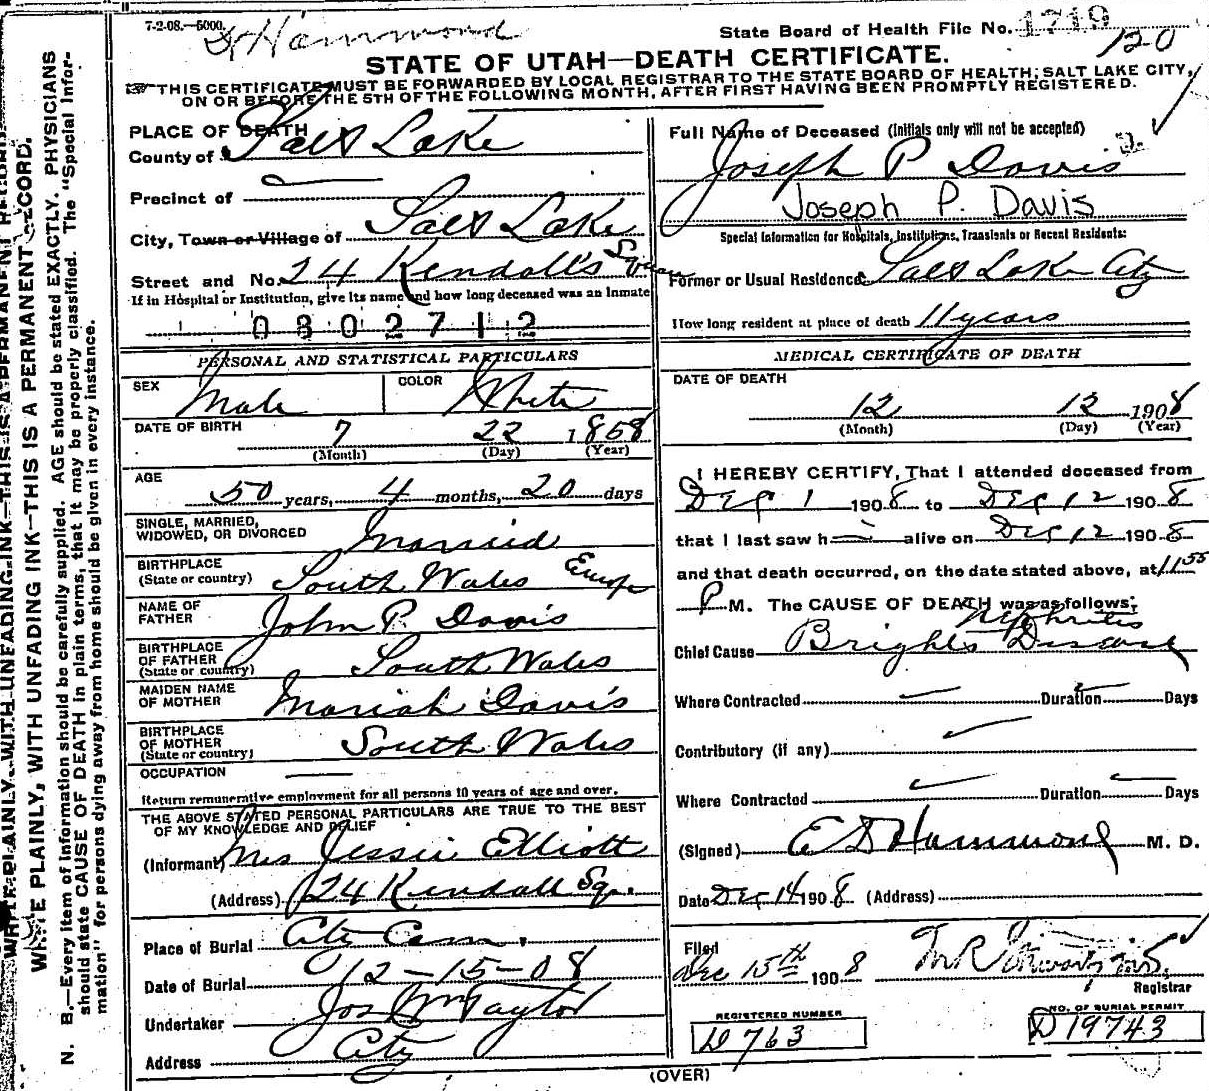 7-2-08.—5000.
Dr Hammond
State Board of Health File No. 1719
120
STATE OF UTAH—DEATH CERTIFICATE.
THIS CERTIFICATE MUST BE FORWARDED BY LOCAL REGISTRAR TO THE STATE BOARD OF HEALTH, SALT LAKE CITY,
ON OR BEFORE THE 5TH OF THE FOLLOWING MONTH, AFTER FIRST HAVING BEEN PROMPTLY REGISTERED.
WRITE PLAINLY, WITH UNFADING INK—THIS IS A PERMANENT RECORD.
WRITE PLAINLY, WITH UNFADING INK—THIS IS A PERMANENT RECORD.
N. B.—Every item of information should be carefully supplied. AGE should be stated EXACTLY. PHYSICIANS
should state CAUSE OF DEATH in plain terms, that it may be properly classified. The "Special Infor-
mation" for persons dying away from home should be given in every instance.
PLACE OF DEATH
County of Salt Lake
Precinct of
City, Town or Village of Salt Lake
Street and No. 24 Kendall's Square
If in Hospital or Institution, give its name and how long deceased was an Inmate
0802712
PERSONAL AND STATISTICAL PARTICULARS
SEX Male COLOR White
DATE OF BIRTH 7 22 1858
(Month) (Day) (Year)
AGE 50 years, 4 months, 20 days
SINGLE, MARRIED,
WIDOWED, OR DIVORCED Married
BIRTHPLACE
(State or country) South Wales Europe
NAME OF
FATHER John P. Davis
BIRTHPLACE
OF FATHER
(State or country) South Wales
MAIDEN NAME
OF MOTHER Mariah Davis
BIRTHPLACE
OF MOTHER
(State or country) South Wales
OCCUPATION
Return remunerative employment for all persons 10 years of age and over.
THE ABOVE STATED PERSONAL PARTICULARS ARE TRUE TO THE BEST
OF MY KNOWLEDGE AND BELIEF
(Informant) Mrs Jessie Elliott
(Address) 24 Kendall Sqr.
Place of Burial City Cem.
Date of Burial 12-15-08
Undertaker Jos Wm Taylor
Address City
Full Name of Deceased (Initials only will not be accepted)
Joseph P Davis
Joseph P. Davis
Special Information for Hospitals, Institutions, Transients or Recent Residents:
Former or Usual Residence Salt Lake City
How long resident at place of death 11 years
MEDICAL CERTIFICATE OF DEATH
DATE OF DEATH
12 12 1908
(Month) (Day) (Year)
I HEREBY CERTIFY, That I attended deceased from
Dec 1 1908 to Dec 12 1908
that I last saw h alive on Dec 12 1908
and that death occurred, on the date stated above, at 11 55
P M. The CAUSE OF DEATH was as follows:
Nephritis
Chief Cause Brights Disease
Where Contracted Duration Days
Contributory (if any)
Where Contracted Duration Days
(Signed) E S Hammond M. D.
Date Dec 14 1908 (Address)
Filed
Dec 15th 1908
Registrar
REGISTERED NUMBER
D 763
NO. OF BURIAL PERMIT
D 19743
(OVER)